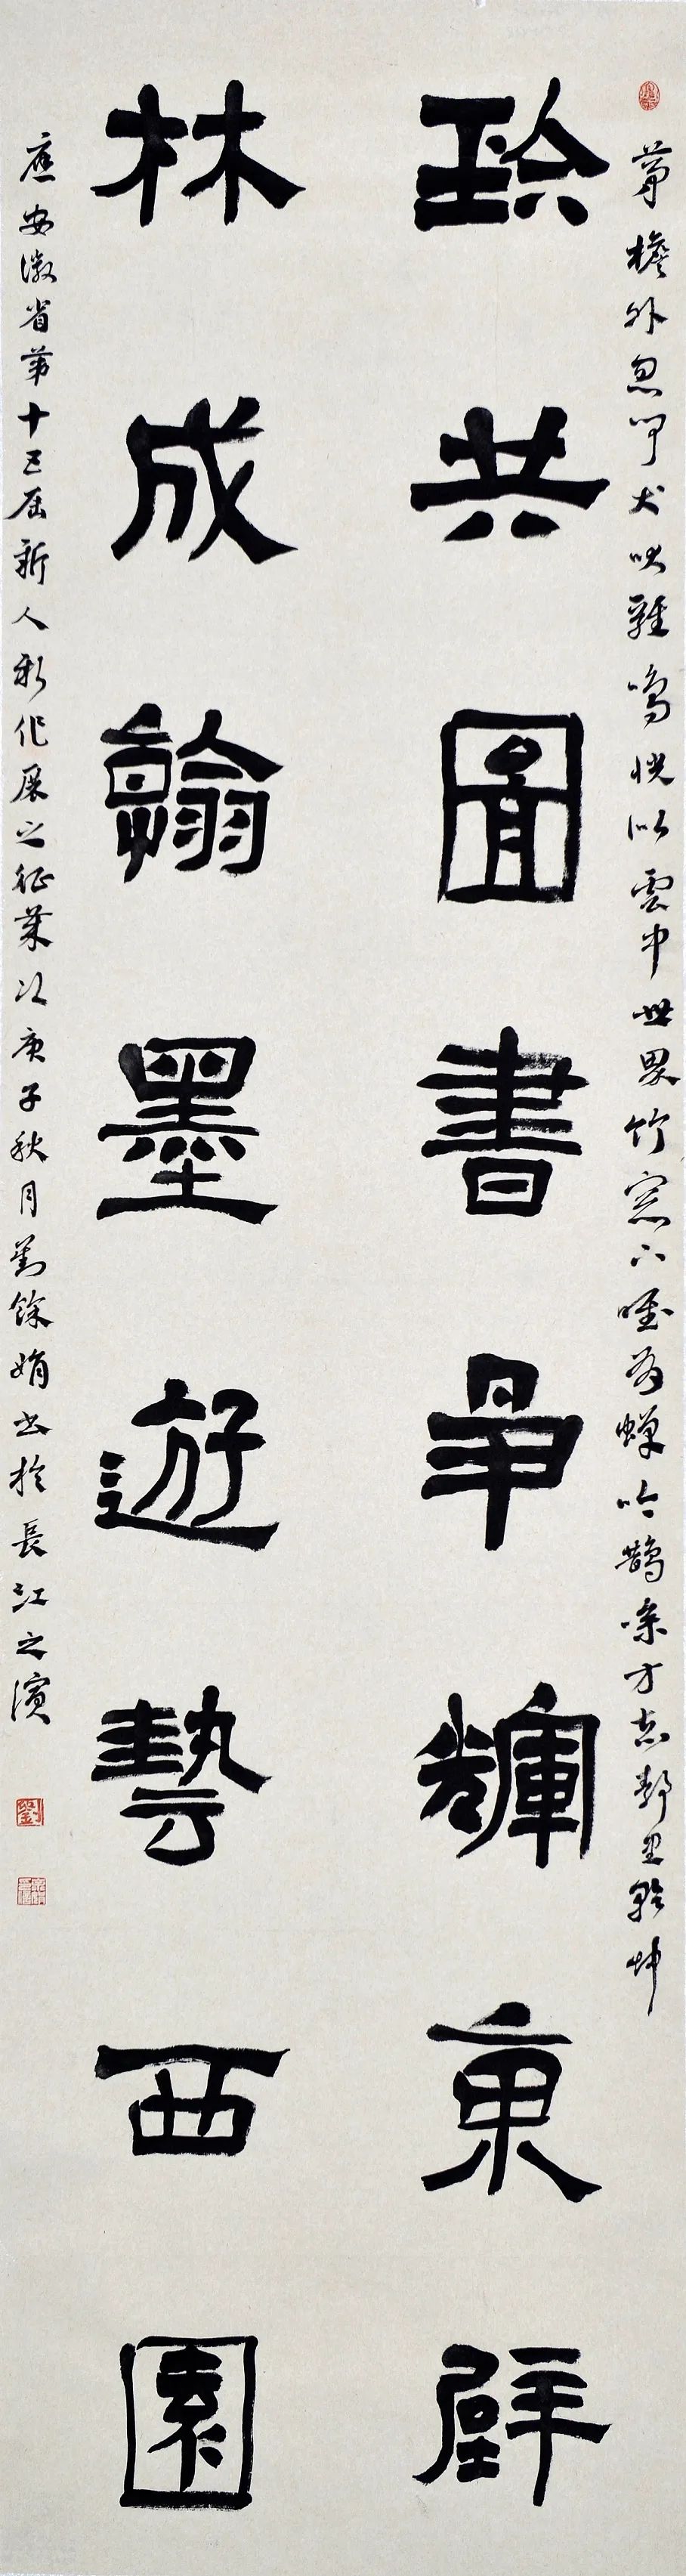 茅檐外忽聞犬吠雞鳴恍似雲中世界竹窓下唯有蟬吟鵲噪方知靜里乾坤
珍共圖書爭輝東壁
林成翰墨遊藝西園
應安徽省第十五屆新人新作展之征歲次庚子秋月劉餘娟書於長江之濱
劉